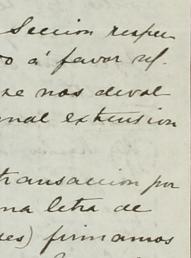 Seccion respec
o á favor ref.
se nos devol
nal extension
transaccion por
na letra de
es) firmamos